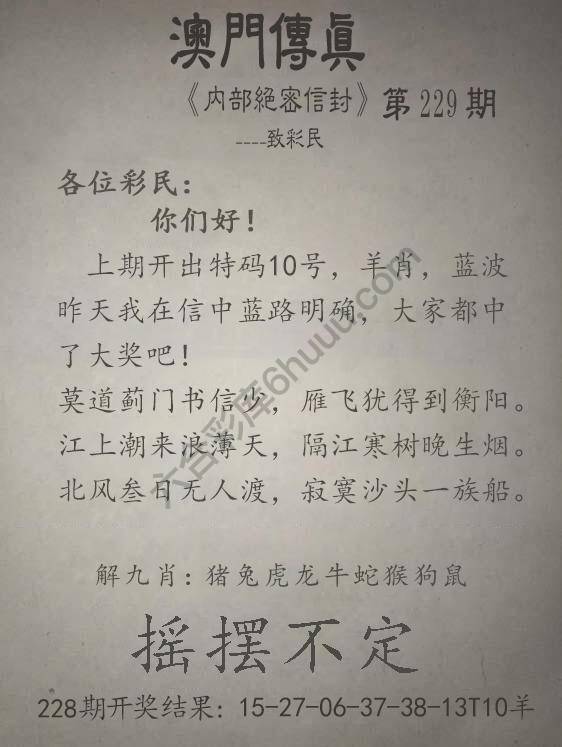 澳門傳真
《内部絕密信封》第229期
----致彩民
各位彩民：
你们好！
上期开出特码10号，羊肖，蓝波
昨天我在信中蓝路明确，大家都中
了大奖吧！
莫道蓟门书信少，雁飞犹得到衡阳。
江上潮来浪薄天，隔江寒树晚生烟。
北风叁日无人渡，寂寞沙头一族船。
解九肖：猪兔虎龙牛蛇猴狗鼠
摇摆不定
228期开奖结果：15-27-06-37-38-13T10羊
六合彩库6huuu.com